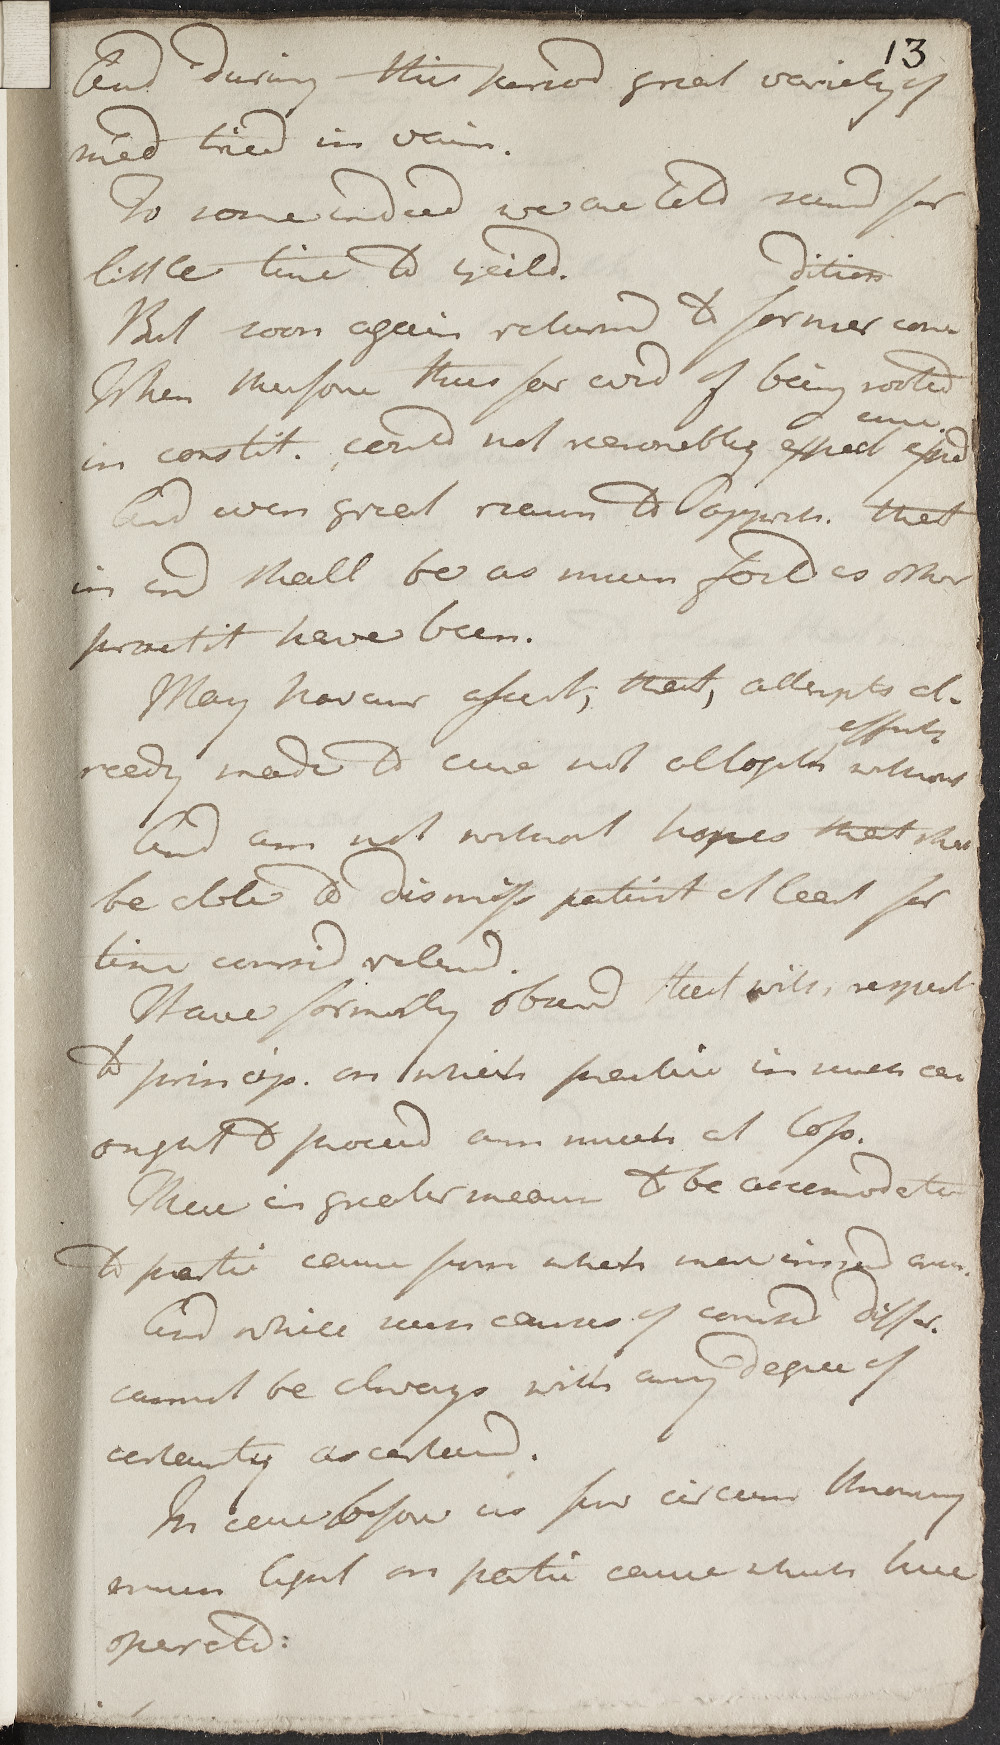 13
And during this period great variety of
med tried in vain.
To some indeed we are told seemd for
little time to yeild.
But soon again returnd to former con
dition
When therfore thus far evid of being rooted
in constit. could not reasonably expect
cure.
And even great reason to appreh. that
in end shall be as much foild as other
practit have been.
May howevr assert, that, attempts al-
ready made to cure not altogeth without
effects
And am not without hopes that shall
be able to dismiss patient at least for
time consid reliend.
Have formerly observd that with respect
to princip. on which practice in such cas
ought to proceed am much at loss.
There is greater measure to be accomodated
to partic cause from which
And while such causes of consid differ.
cannot be always with any degree of
certainty ascertaind.
In case before us few circum throwing
much light on partic cause which have
operatd: